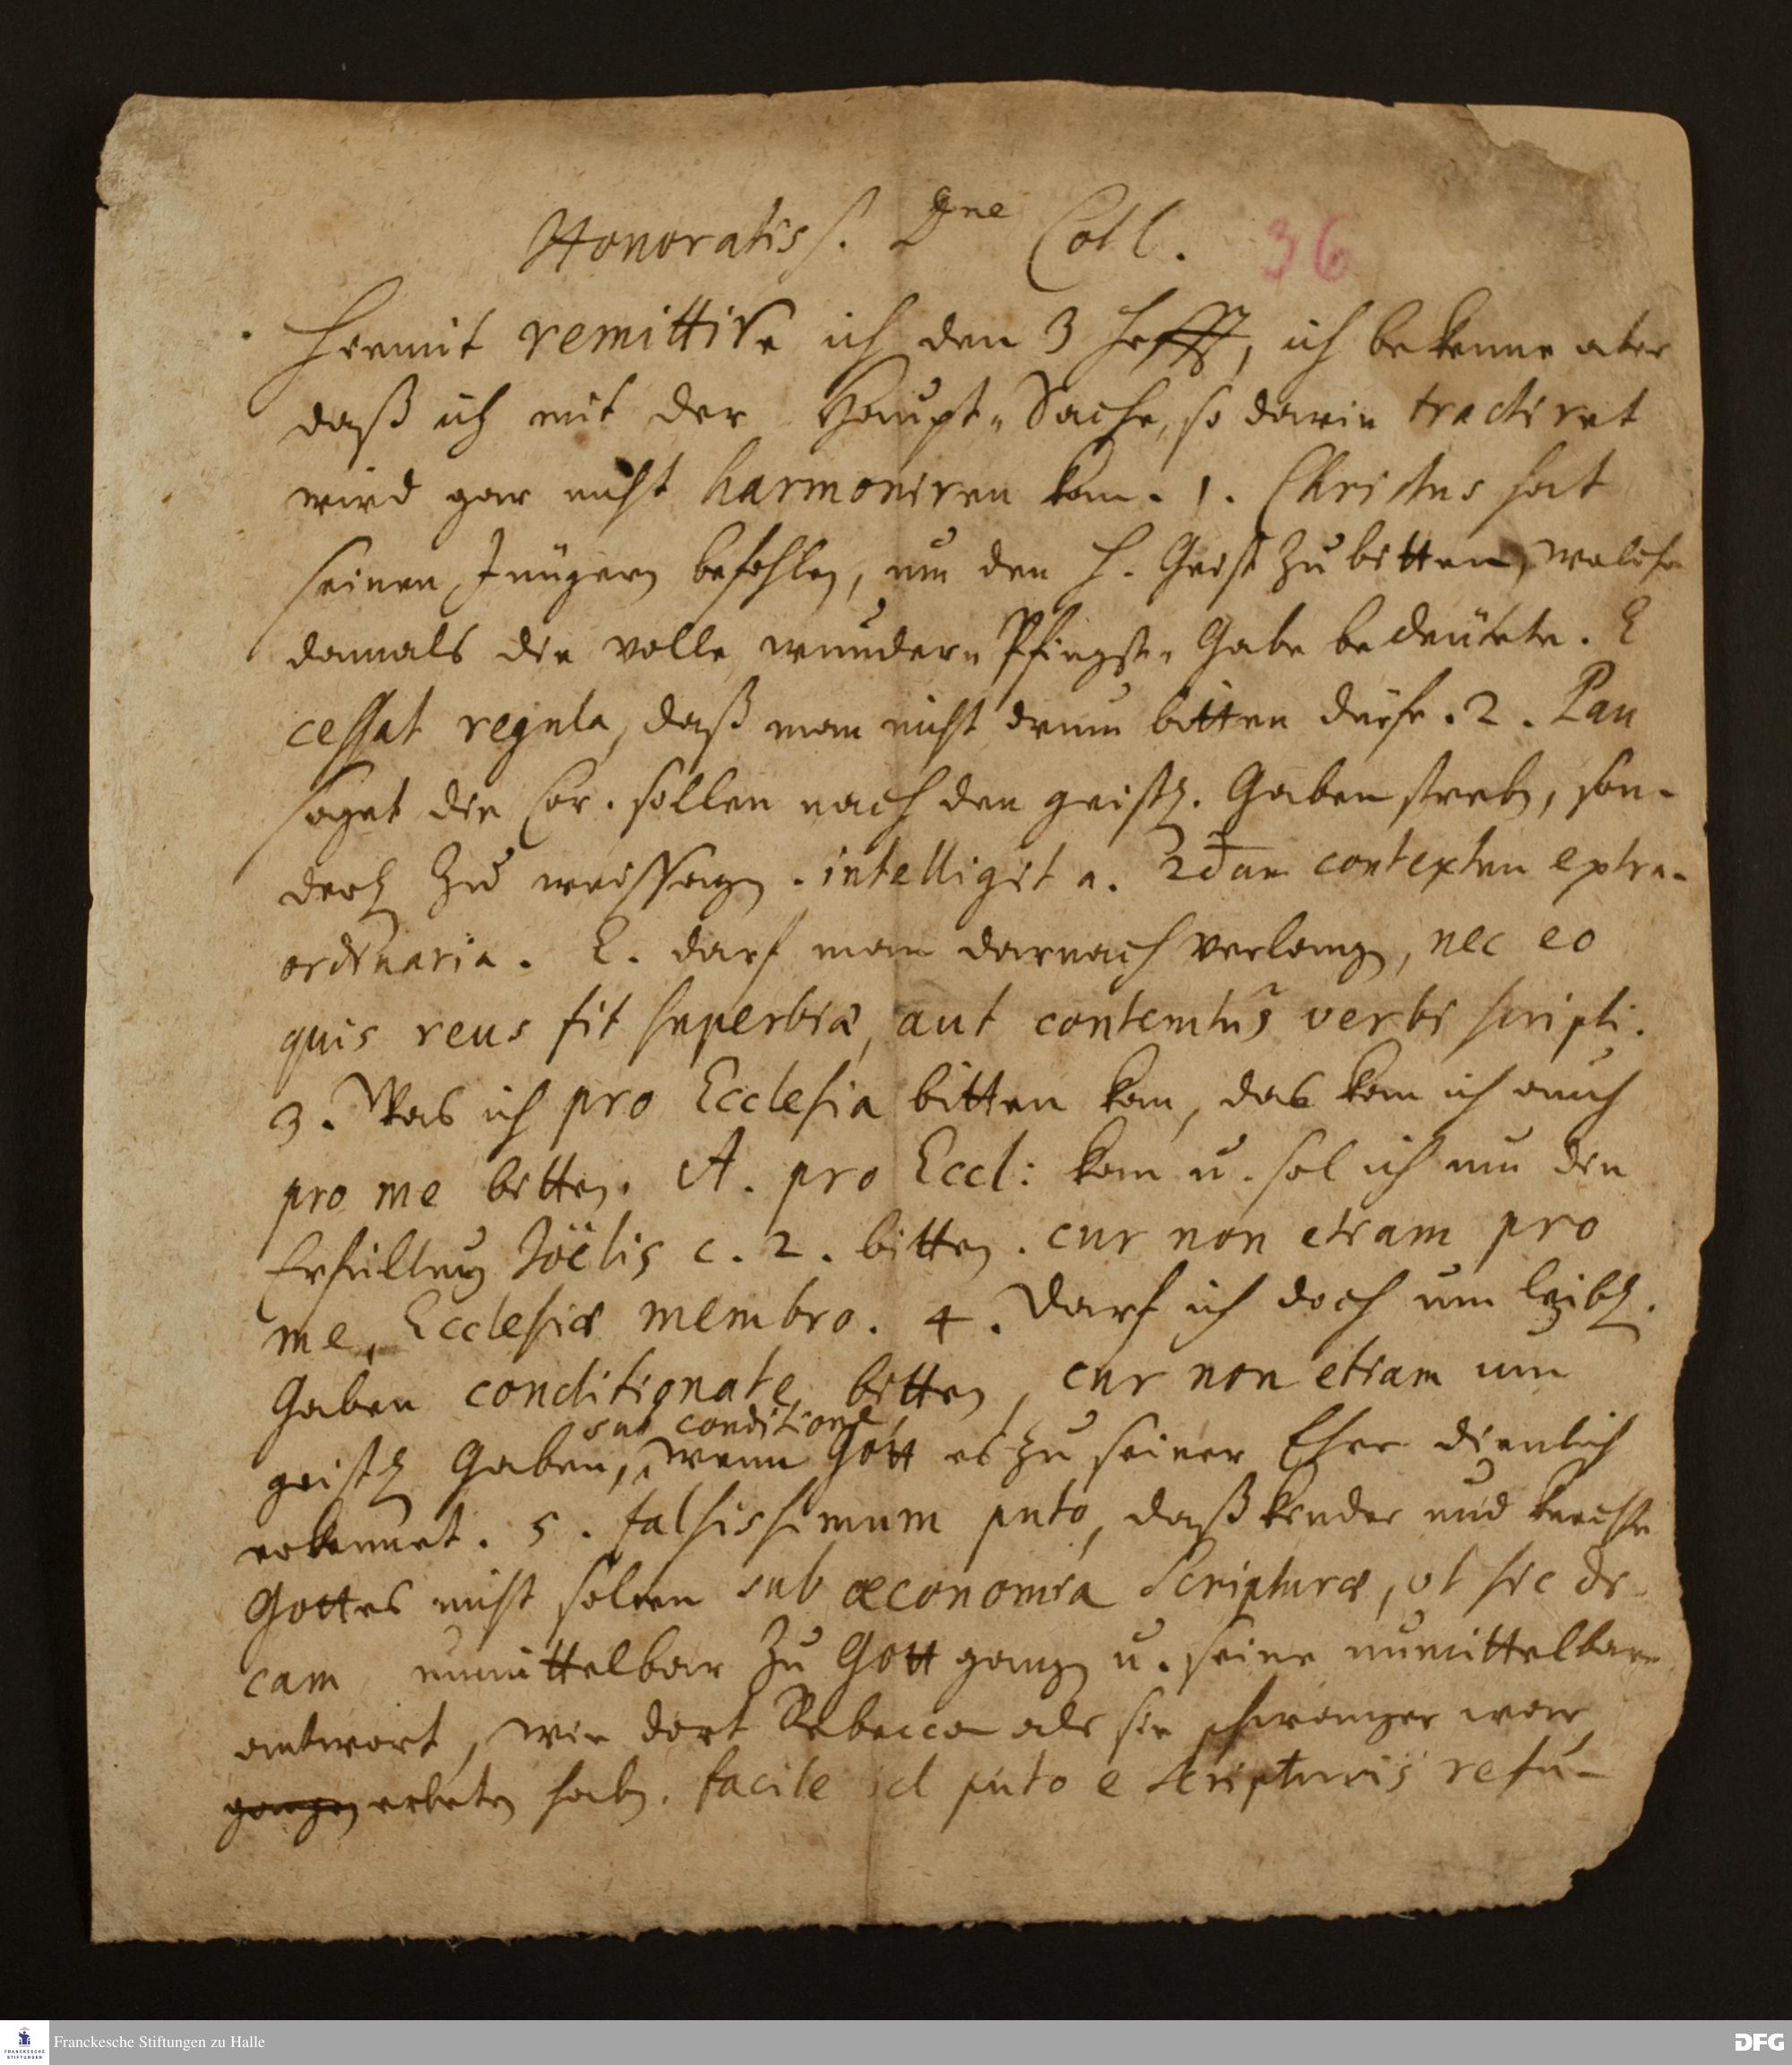 Honoratiss. Dne Coll.
36
Hiemit remittire ich den 3 Hefft, ich bekenne aber
daß ich mit der Haupt-Sache, so darin tractiret
wird gar nicht harmoniren kan. 1. Christus hat
seinen Jüngern befohlen, um den H. Geist zu bitten, welches
damals die volle wunder-Pfingst-Gabe bedeutete. E
cessat regula, daß man nicht drum bitten dürfe. 2. Pau
saget die Cor. sollen nach den geistl. Gaben streben, son-
derl. zu weissagen. intelligit a. 2dum contextum extra-
ordinaria. E. darf man darnach verlangen, nec eo
quis reus fit superbiæ, aut contemtus verbi scripti.
3. Was ich pro Ecclesia bitten kan, das kan ich auch
pro me bitten. A. pro Eccl: kan u. sol ich um die
Erfüllung Joëlis c. 2. bitten. cur non etiam pro
me, Ecclesiæ membro. 4. Darf ich doch um leibl.
Gaben conditionate bitten, cur non etiam um
geistl Gaben, sub conditione, wenn Gott es zu seiner Ehre dienlich
erkennet. 5. falsissimum puto, daß kinder und knechte
Gottes nicht solten sub œconomia Scripturæ, ut sic di-
cam unmittelbar zu Gott gangen u. seine unmittelbare
antwort, wie dort Rebecca als sie schwanger war,
gangen erbeten haben. facile id puto e scripturis refu-
Franckesche Stiftungen zu Halle
FRANCKESCHE STIFTUNGEN
DFG